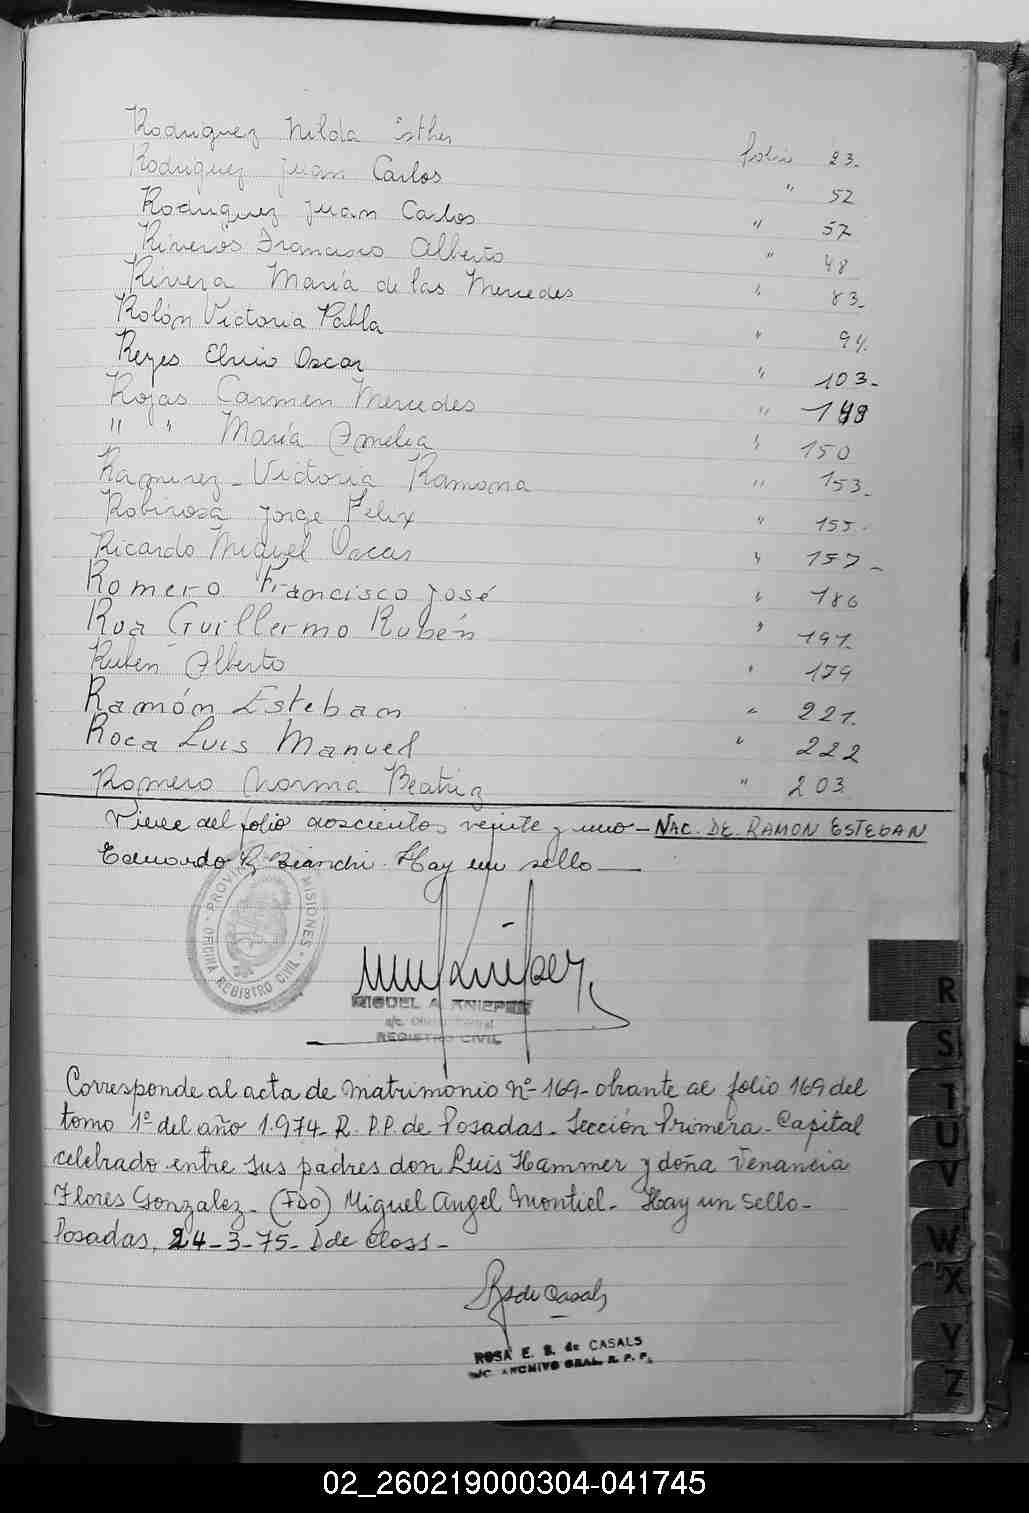 Rodriguez Nilda Esther folio 23.
Rodriguez Juan Carlos " 52
Rodriguez Juan Carlos " 57
Riveros Francisco Alberto " 48
Rivera María de las Mercedes " 83.
Rolón Victoria Pabla " 94.
Reyes Elvio Oscar " 103.
Rojas Carmen Mercedes " 148
" " María Amelia " 150
Ramirez Victoria Ramona " 153.
Robirosa Jorge Felix " 155.
Ricardo Miguel Oscar " 157.
Romero Francisco José " 186
Roa Guillermo Rubén " 191.
Ruben Alberto " 179
Ramón Esteban " 221.
Roca Luis Manuel " 222
Romero Norma Beatriz " 203
Viene del folio doscientos veinte y uno - NAC. DE RAMON ESTEBAN
Eduardo Bianchi. Hay un sello
PROVINCIA MISIONES
OFICINA REGISTRO CIVIL
MIGUEL A.
REGISTRO CIVIL
Corresponde al acta de matrimonio Nº 169- obrante al folio 169 del
tomo 1º del año 1.974- R.P.P. de Posadas- Sección Primera- Capital
celebrado entre sus padres don Luis Hammer y doña Venancia
Flores Gonzalez- (FDO) Miguel Angel Montiel- Hay un sello-
Posadas, 24-3-75-
RS de Casals
ROSA E. S. de CASALS
A/C. ARCHIVO GRAL. R. P. P.
R
S
T
U
V
W
X
Y
Z
02_260219000304-041745